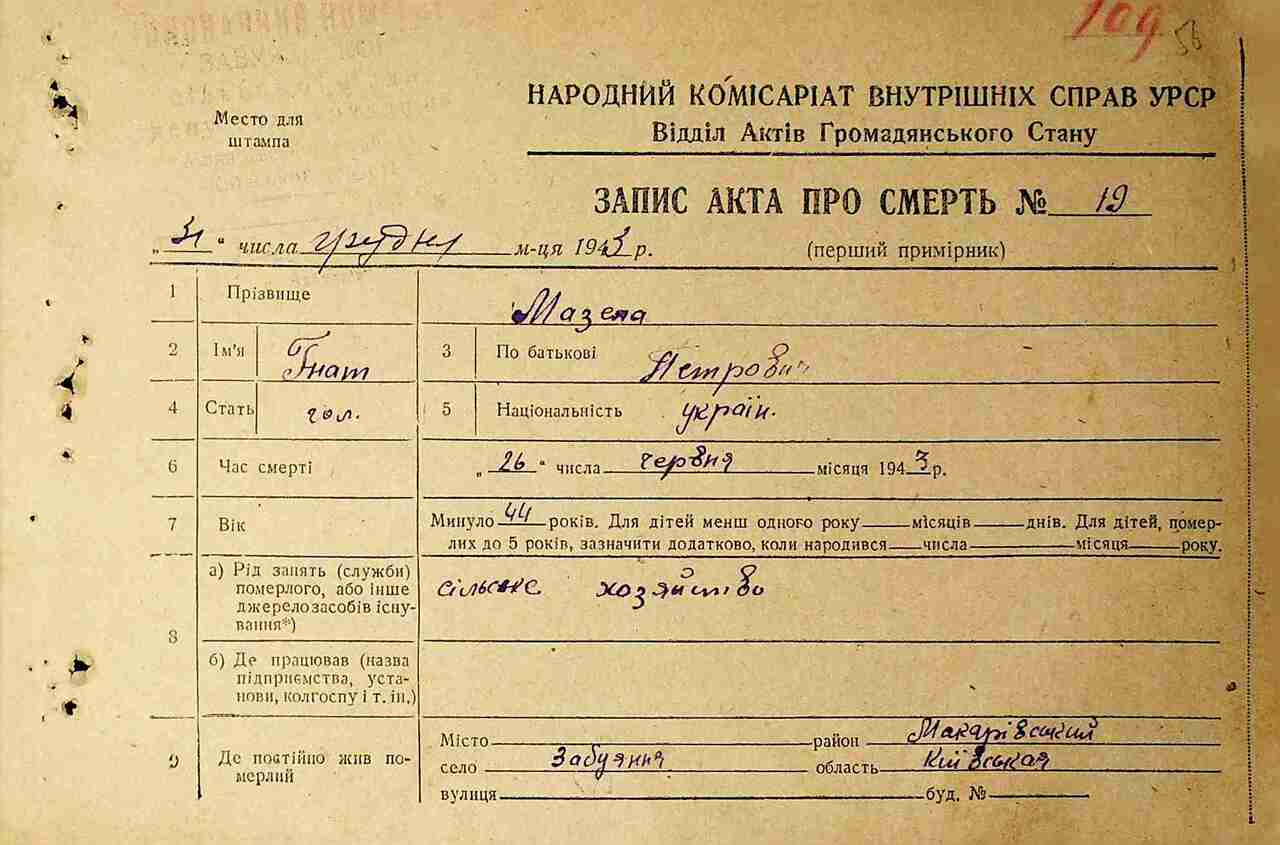 109 56
НАРОДНИЙ КОМІСАРІАТ ВНУТРІШНІХ СПРАВ УРСР
Місто для
штампа
Відділ Актів Громадянського Стану
ЗАПИС АКТА ПРО СМЕРТЬ № 19
„31“ числа грудня м-ця 1943 р. (перший примірник)
1 Прізвище Мазепа
2 Ім'я Гнат 3 По батькові Петрович
4 Стать чол. 5 Національність україн.
6 Час смерті „26“ числа червня місяця 1943 р.
7 Вік Минуло 44 років. Для дітей менш одного року місяців днів. Для дітей, помер-
лих до 5 років, зазначити додатково, коли народився числа місяця року.
8 а) Рід занять (служби) сільське хозяйство
померлого, або інше
джерело засобів існу-
вання*)
б) Де працював (назва
підприємства, уста-
нови, колгоспу і т. ін.)
9 Де постійно жив по-
мерлий
Місто район Макарівський
село Забуяння область Київськая
вулиця буд. №